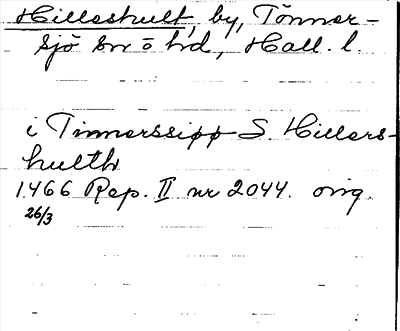 Hilleshult, by, Tönner-
sjö sn o hd, Hall. l.
i Tinnerssiøø S. Hillers-
hulth
1466 Rep. II nr 2044. orig.
26/3